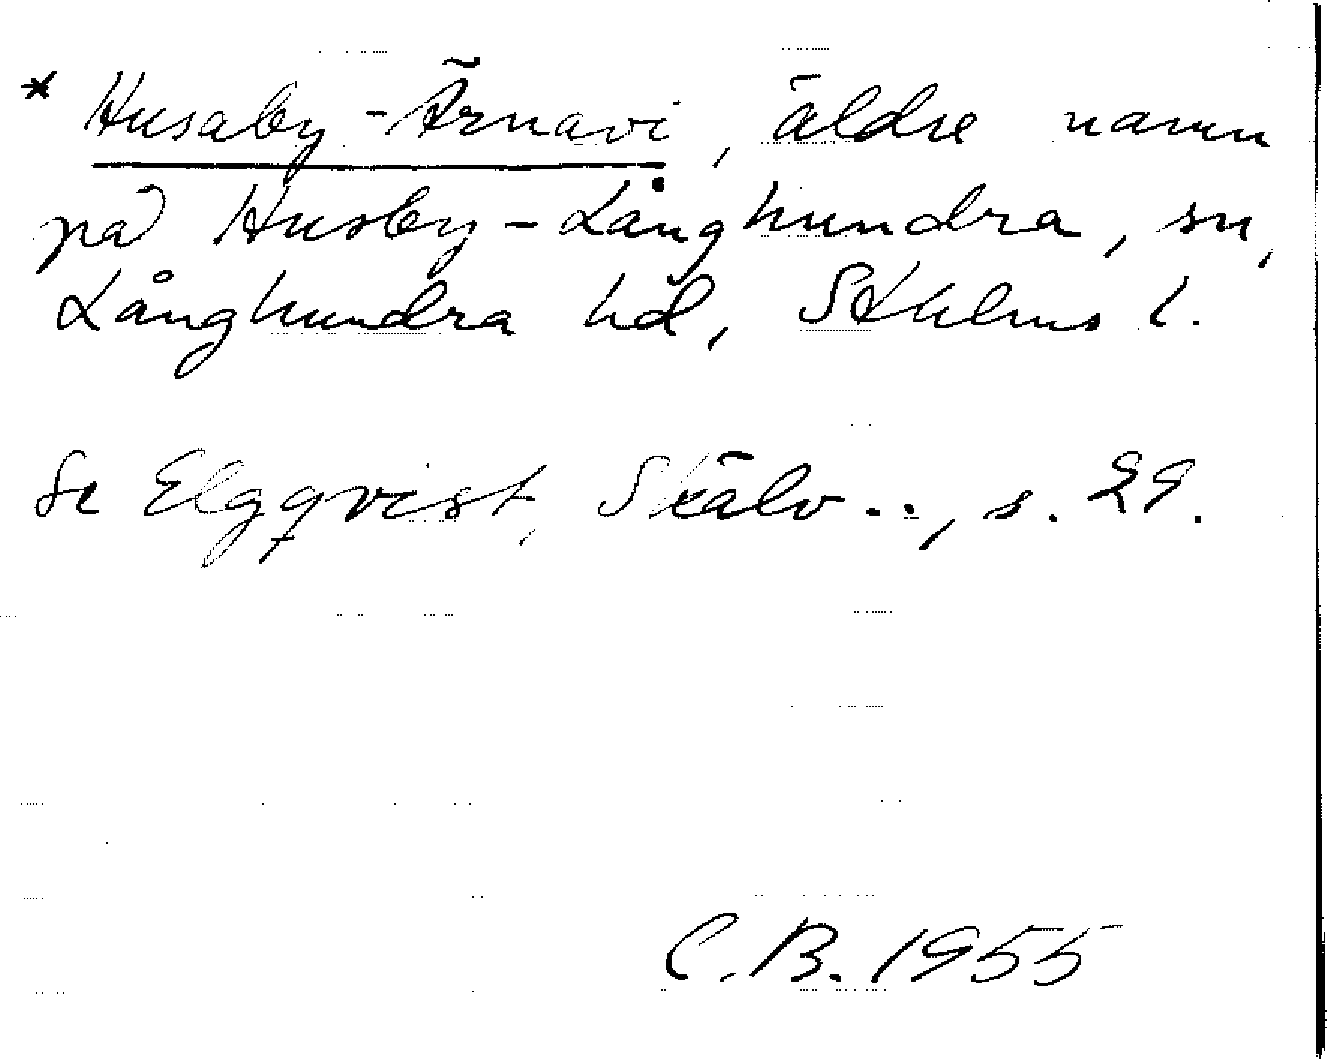 * Husaby-Ärnavi, äldre namn
på Husby-Långhundra, sn,
Långhundra hd, Sthlms l.
Se Elgqvist, Skälv .., s. 29.
C.B. 1955